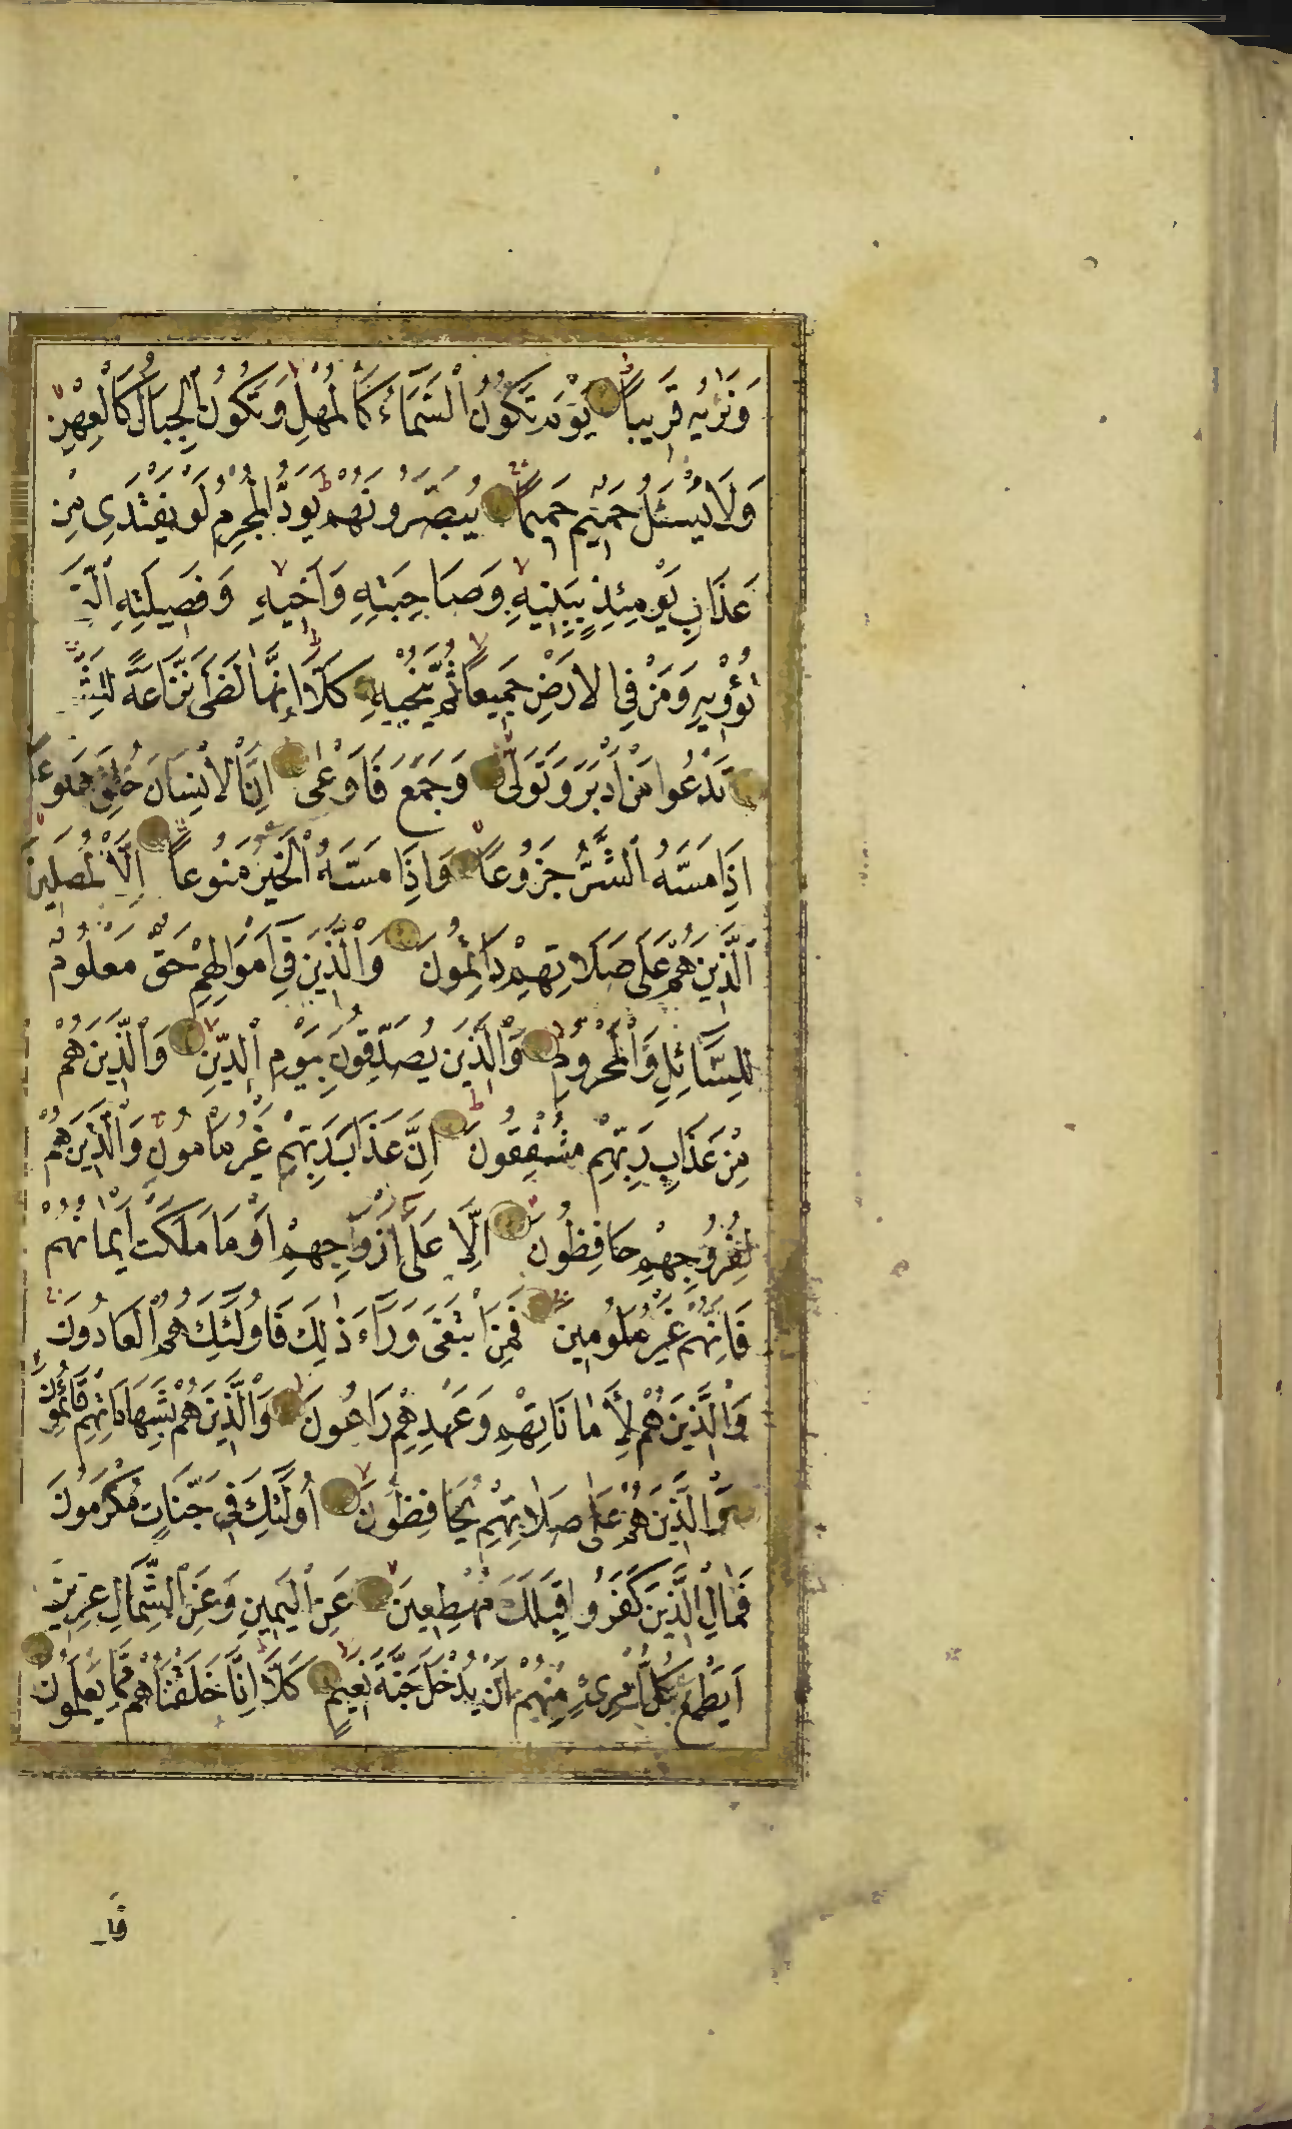 وَنَرٰيهُ قَرِيباً يَوْمَ تَكُونُ ٱلسَّمَآءُ كَالْمُهْلِ وَتَكُونُ ٱلْجِبَالُ كَالْعِهْنِ
وَلَا يُسْئَلُ حَمِيمٌ حَمِيماً يُبَصَّرُونَهُمْ يَوَدُّ الْمُجْرِمُ لَوْ يَفْتَدِى مِنْ
عَذَابِ يَوْمِئِذٍ بِبَنِيهِ وَصَاحِبَتِهِ وَاَخِيهِ وَفَصِيلَتِهِ ٱلَّتِى
تُؤْوِيهِ وَمَنْ فِى الارَضِ جَمِيعاً ثُمَّ يُنْجِيهِ كَلَّا اِنَّهَا لَظٰى نَزَّاعَةً لِلشَّ
تَدْعُوا مَنْ اَدْبَرَ وَتَوَلّٰى وَجَمَعَ فَاَوْعٰى اِنَّ ٱلْاِنْسَانَ خُلِقَ هَلُوعاً
اِذَا مَسَّهُ ٱلشَّرُّ جَزُوعاً وَاِذَا مَسَّهُ ٱلْخَيْرُ مَنُوعاً اِلَّا الْمُصَلِّينَ
ٱلَّذِينَ هُمْ عَلٰى صَلَاتِهِمْ دَائِمُونَ وَٱلَّذِينَ فِى اَمْوَالِهِمْ حَقٌّ مَعْلُومٌ
لِلسَّائِلِ وَٱلْمَحْرُومِ وَٱلَّذِينَ يُصَدِّقُونَ بِيَوْمِ ٱلدِّينِ وَٱلَّذِينَ هُمْ
مِنْ عَذَابِ رَبِّهِمْ مُشْفِقُونَ اِنَّ عَذَابَ رَبِّهِمْ غَيْرُ مَاْمُونٍ وَٱلَّذِينَ هُمْ
لِفُرُوجِهِمْ حَافِظُونَ اِلَّا عَلٰى اَزْوَاجِهِمْ اَوْ مَا مَلَكَتْ اَيْمَانُهُمْ
فَاِنَّهُمْ غَيْرُ مَلُومِينَ فَمَنِ ابْتَغٰى وَرَآءَ ذٰلِكَ فَاُولٰٓئِكَ هُمُ ٱلْعَادُونَ
وَٱلَّذِينَ هُمْ لِأَمَانَاتِهِمْ وَعَهْدِهِمْ رَاعُونَ وَٱلَّذِينَ هُمْ بِشَهَادَاتِهِمْ قَائِمُونَ
وَٱلَّذِينَ هُمْ عَلٰى صَلَاتِهِمْ يُحَافِظُونَ اُولٰئِكَ فِى جَنَّاتٍ مُكْرَمُونَ
فَمَالِ ٱلَّذِينَ كَفَرُوا قِبَلَكَ مُهْطِعِينَ عَنِ ٱلْيَمِينِ وَعَنِ ٱلشِّمَالِ عِزِينَ
اَيَطْمَعُ كُلُّ امْرِئٍ مِنْهُمْ اَنْ يُدْخَلَ جَنَّةَ نَعِيمٍ كَلَّا اِنَّا خَلَقْنَاهُمْ مِمَّا يَعْلَمُونَ
فَلَا